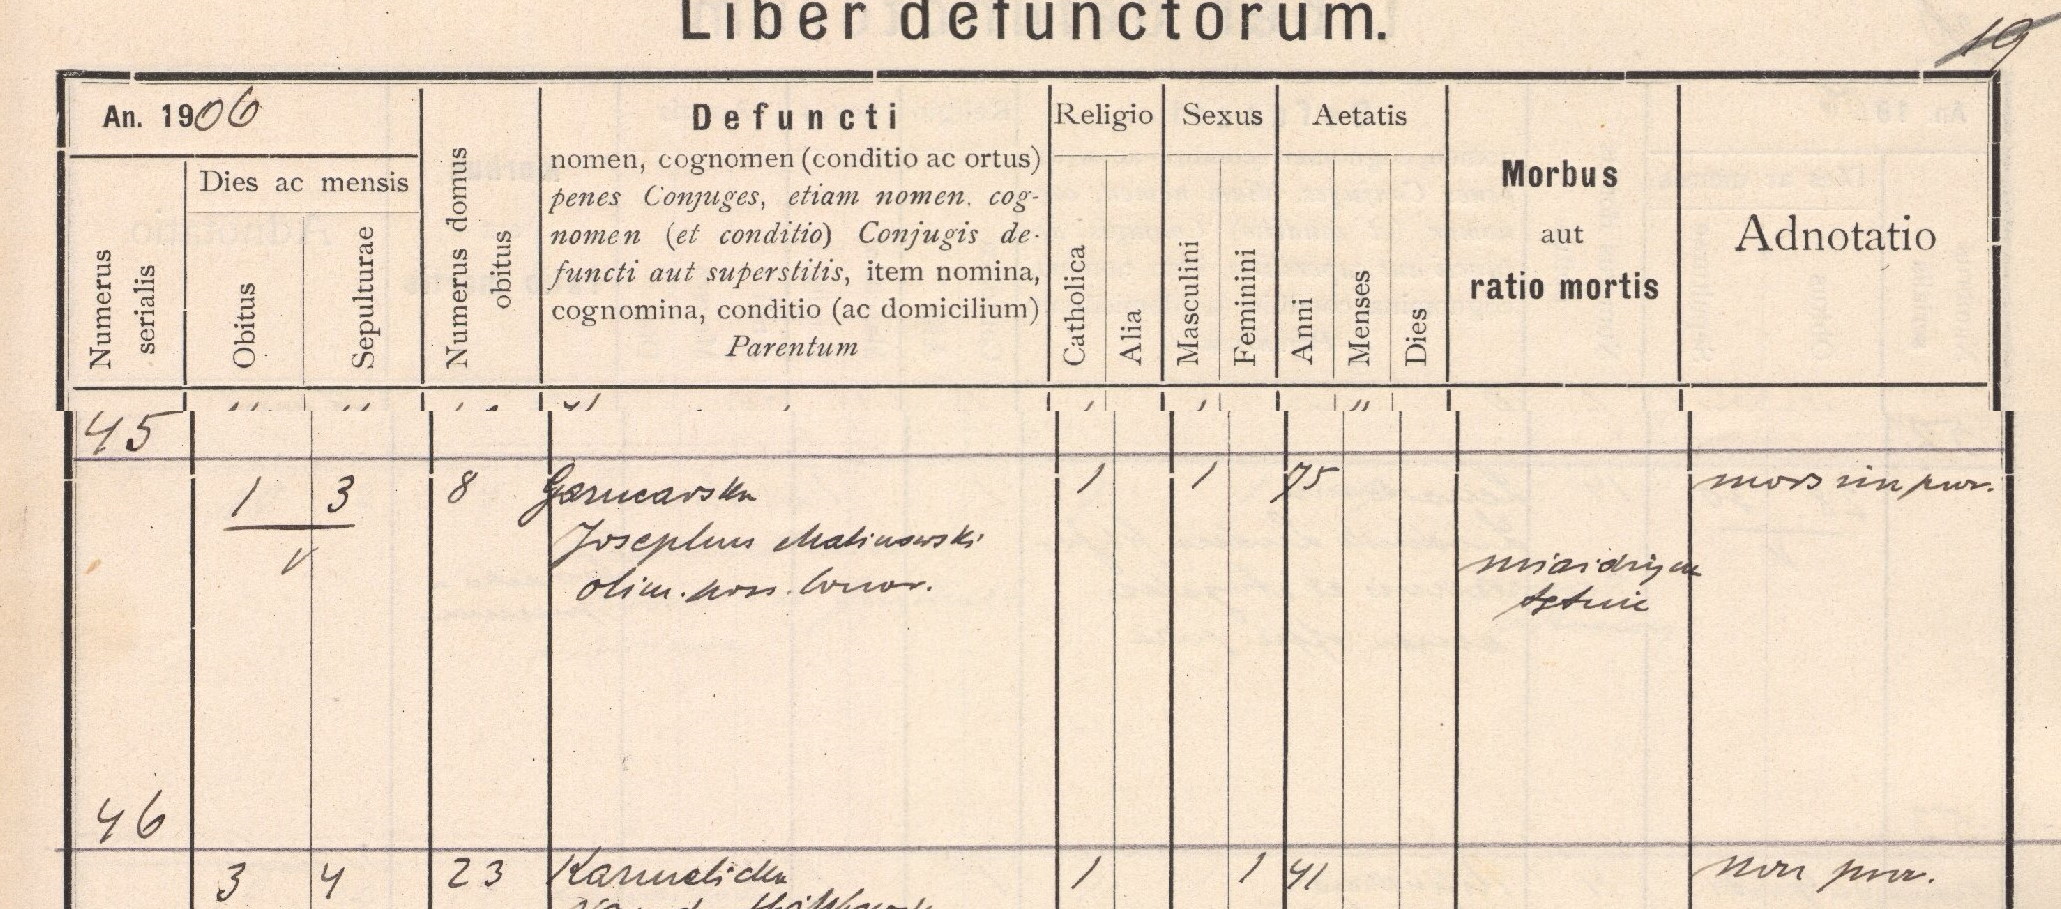 Liber defunctorum.
19
An. 1906
Numerus serialis
Dies ac mensis
Obitus
Sepulturae
Numerus domus obitus
Defuncti
nomen, cognomen (conditio ac ortus)
penes Conjuges, etiam nomen. cog-
nomen (et conditio) Conjugis de-
functi aut superstitis, item nomina,
cognomina, conditio (ac domicilium)
Parentum
Religio
Catholica
Alia
Sexus
Masculini
Feminini
Aetatis
Anni
Menses
Dies
Morbus
aut
ratio mortis
Adnotatio
45
1 3 8 Garncarska 1 1 75
Josephus Malinowski
olim. poss. bonor.
miażdżyca
tętnic
46
3 4 23 Karmelicka 1 1 41 non prov.